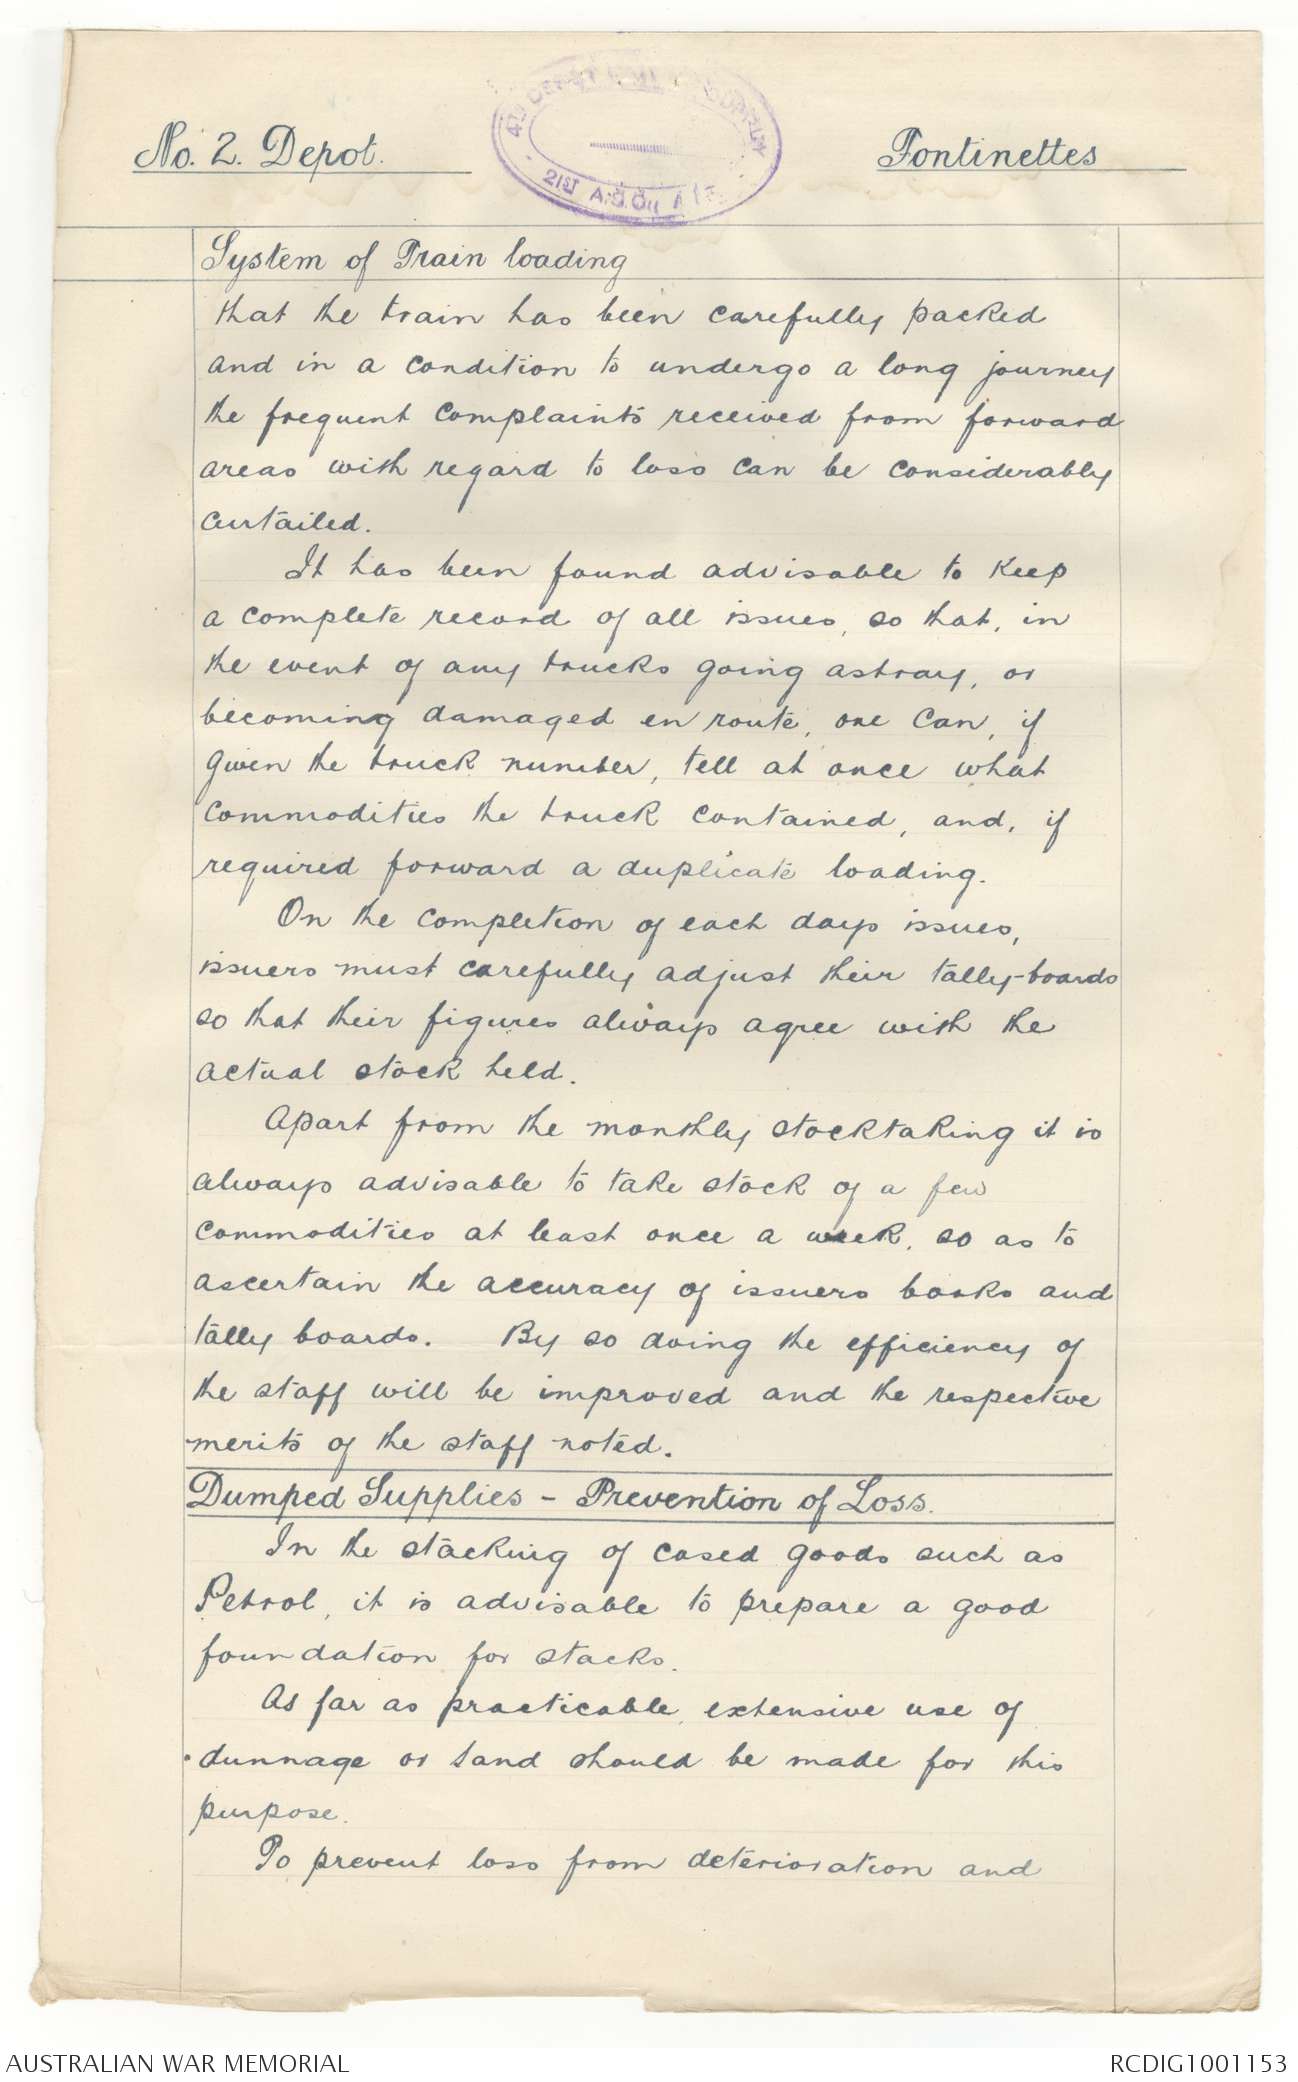 No. 2. Depot.
Fontinettes
4TH DEPOT UNIT SUPPLY
21ST A.S.C.
System of Train loading
that the train has been carefully packed
and in a condition to undergo a long journey
the frequent complaints received from forward
areas with regard to loss can be considerably
curtailed.
It has been found advisable to keep
a complete record of all issues, so that, in
the event of any trucks going astray, or
becoming damaged en route, one can, if
given the truck number, tell at once what
commodities the truck contained, and, if
required forward a duplicate loading.
On the completion of each days issues,
issuers must carefully adjust their tally-boards
so that their figures always agree with the
actual stock held.
Apart from the monthly stocktaking it is
always advisable to take stock of a few
commodities at least once a week, so as to
ascertain the accuracy of issuers books and
tally boards. By so doing the efficiency of
the staff will be improved and the respective
merits of the staff noted.
Dumped Supplies - Prevention of Loss.
In the stacking of cased goods such as
Petrol, it is advisable to prepare a good
foundation for stacks.
As far as practicable, extensive use of
dunnage or sand should be made for this
purpose.
To prevent loss from deterioration and
AUSTRALIAN WAR MEMORIAL
RCDIG1001153